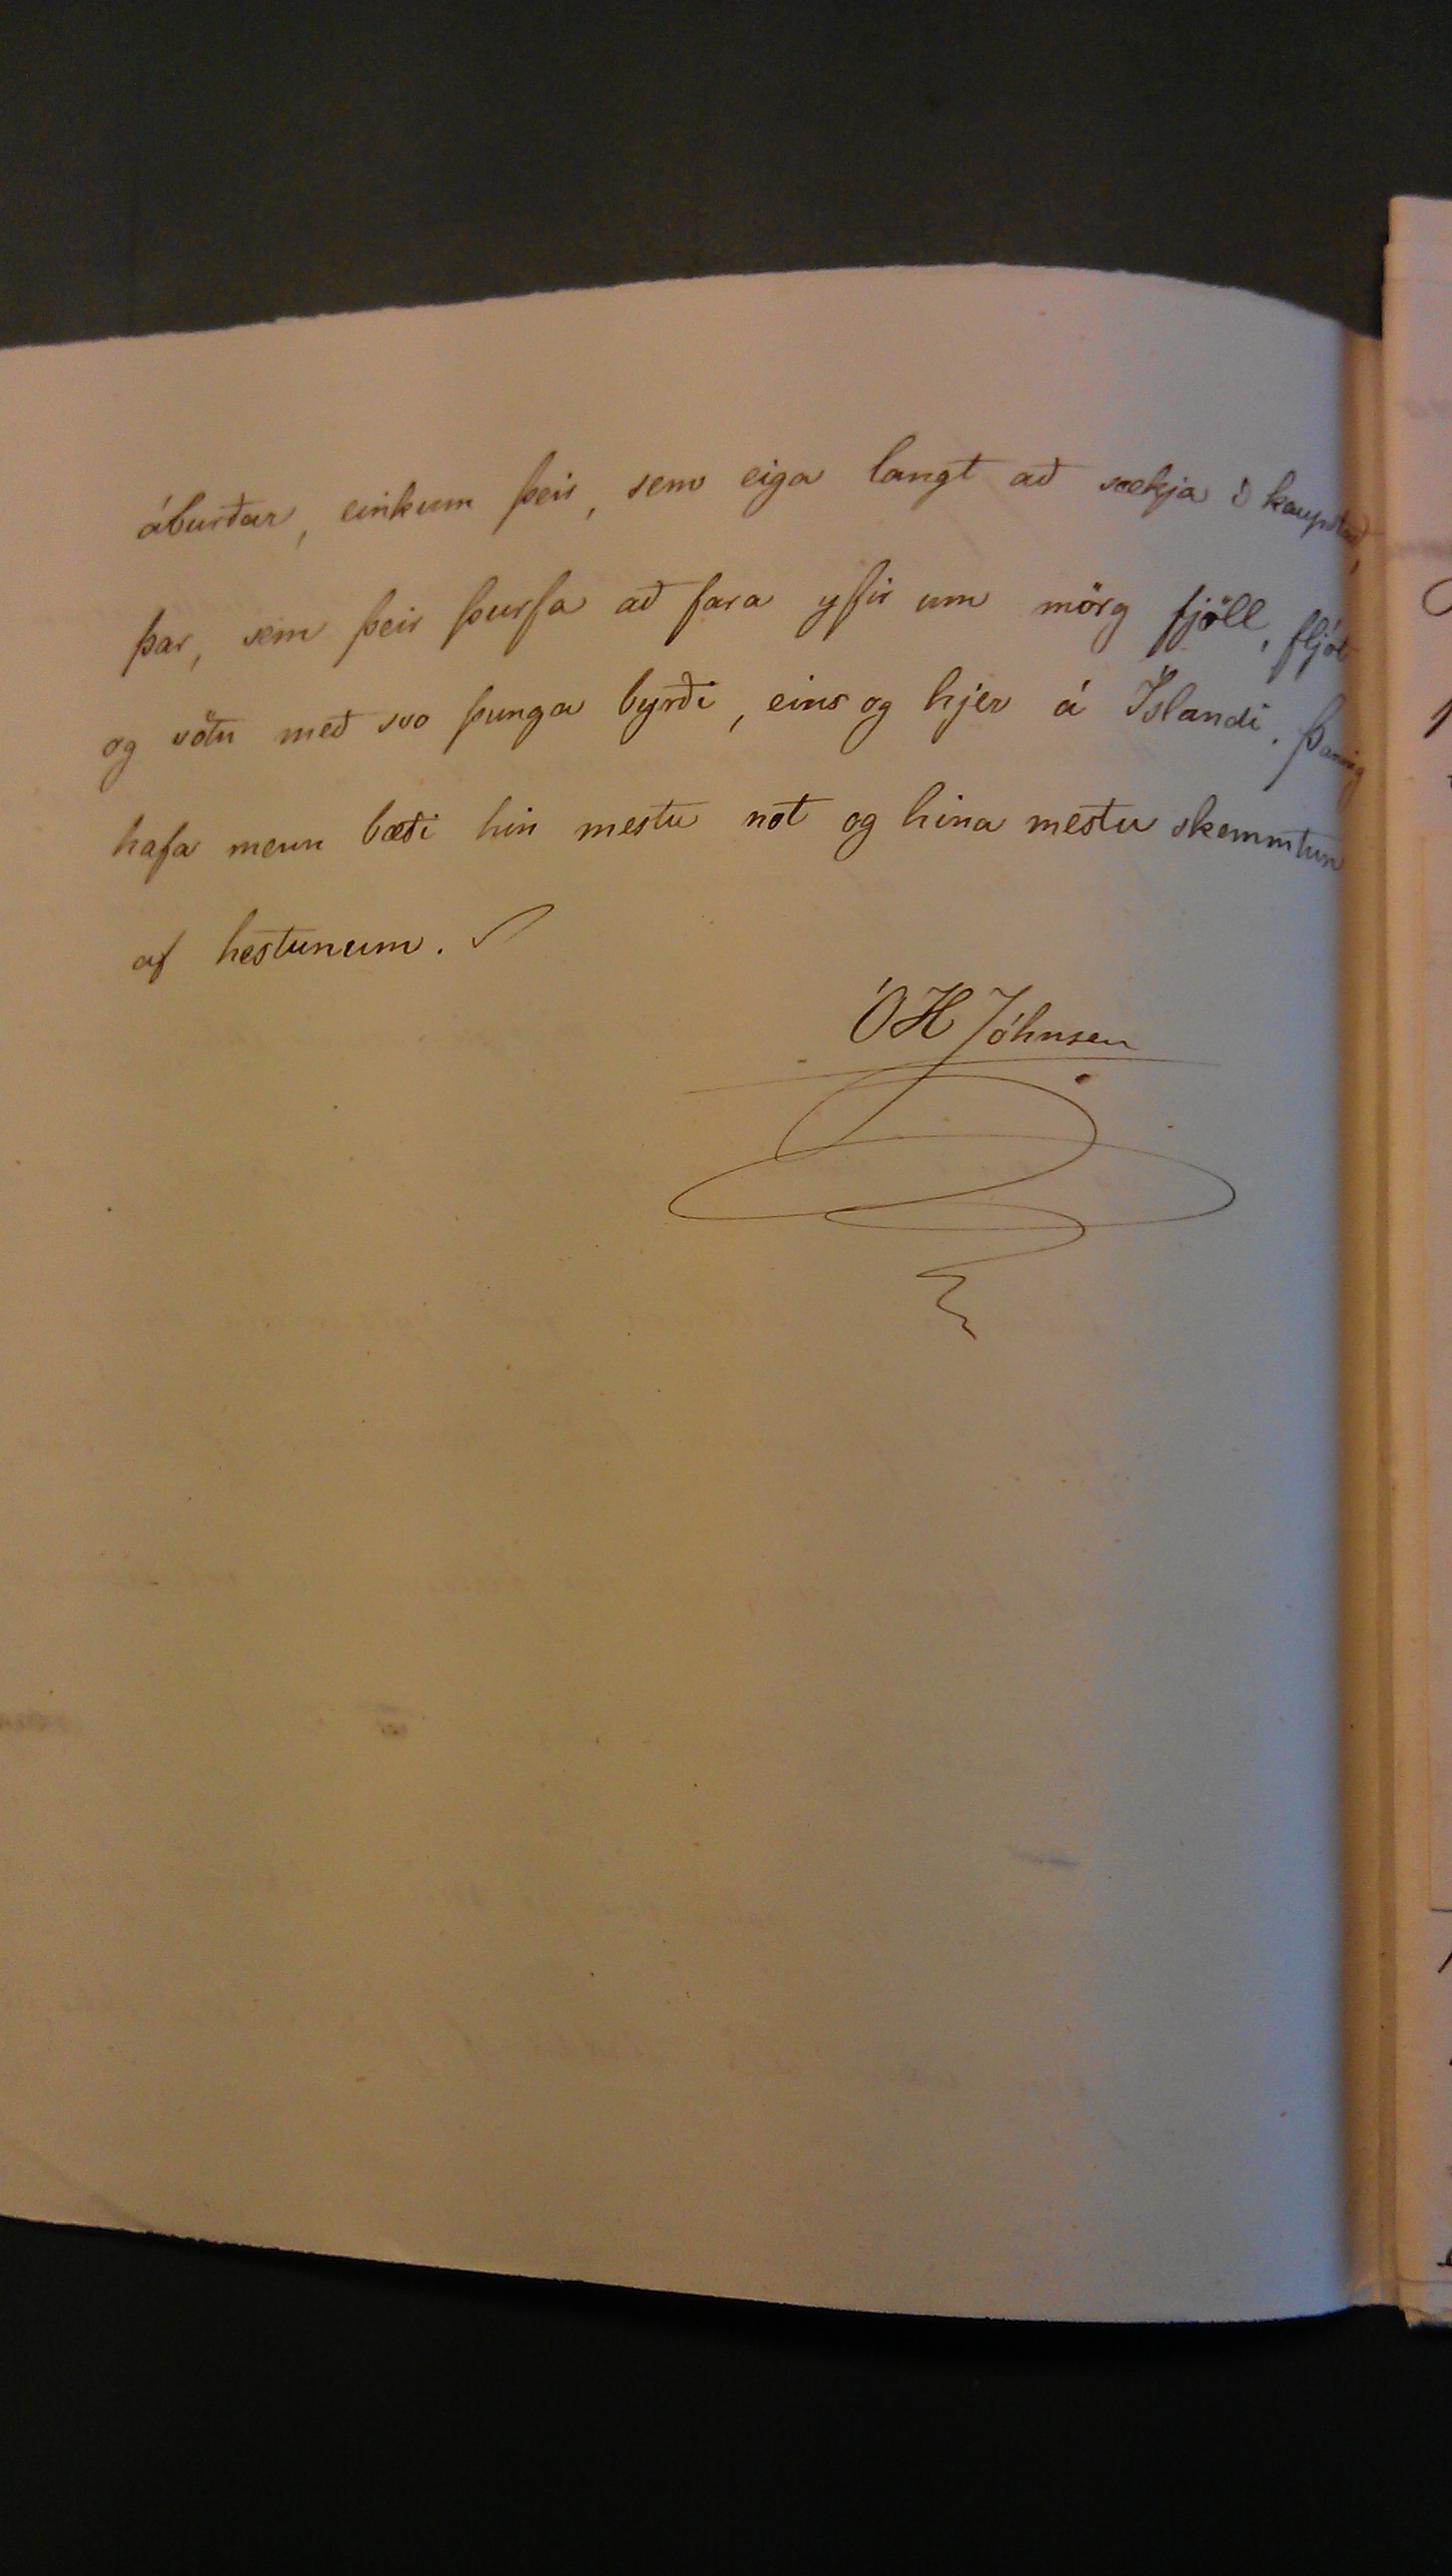 áburðar, einkum þeir, sem eiga langt að sækja í kaupstað,
þar, sem þeir þurfa að fara yfir um mörg fjöll, fljót
og vötn með svo þunga byrði, eins og hjer á Íslandi. Þannig
hafa menn bæði hin mestu not og hina mestu skemmtun
af hestunum.
ÓH Jóhnsen